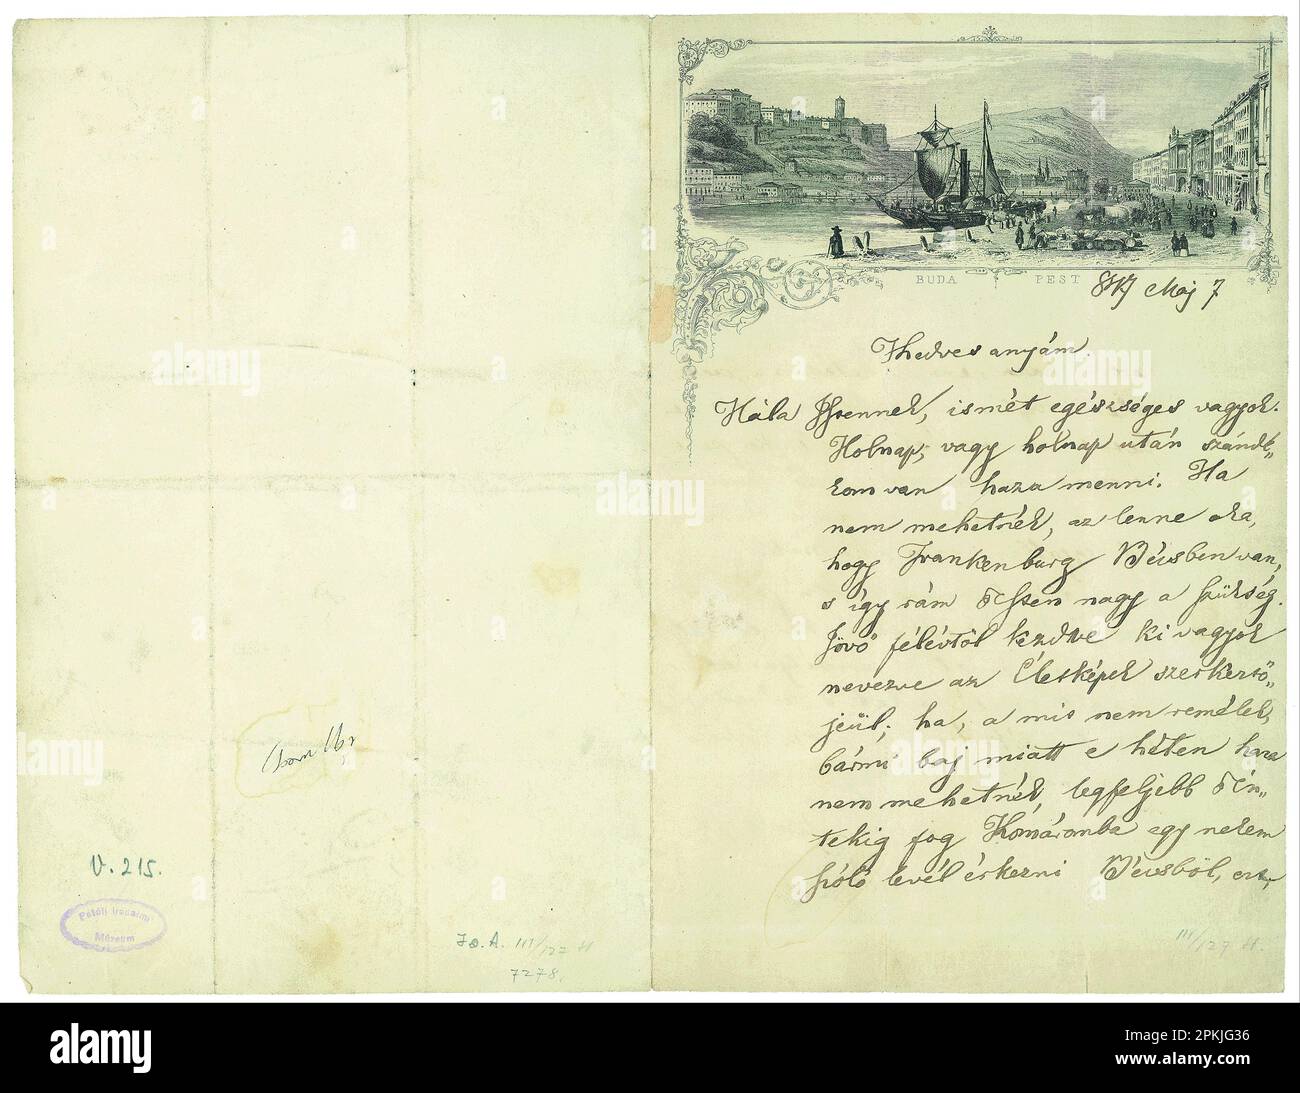 BUDA PEST
847 Máj 7
Kedves anyám.
Hála Istennek, ismét egészséges vagyok.
Holnap, vagy holnap után szándé„
kom van haza menni. Ha
nem mehetnék, az lenne oka,
hogy Frankenburg Bécsben van,
s így rám itten nagy a szükség.
Jövő félévtől kezdve ki vagyok
nevezve az Életképek szerkesztő„
jéül; ha, a mit nem remélek,
bármi baj miatt e héten haza
nem mehetnék, legfeljebb Pén„
tekig fog Komáromba egy nekem
szóló levél érkezni Bécsből, ezt,
V. 215.
Petőfi Irodalmi
Múzeum
III/127 H
7278.
III/127 H.
alamy
Image ID: 2PKJG36
www.alamy.com